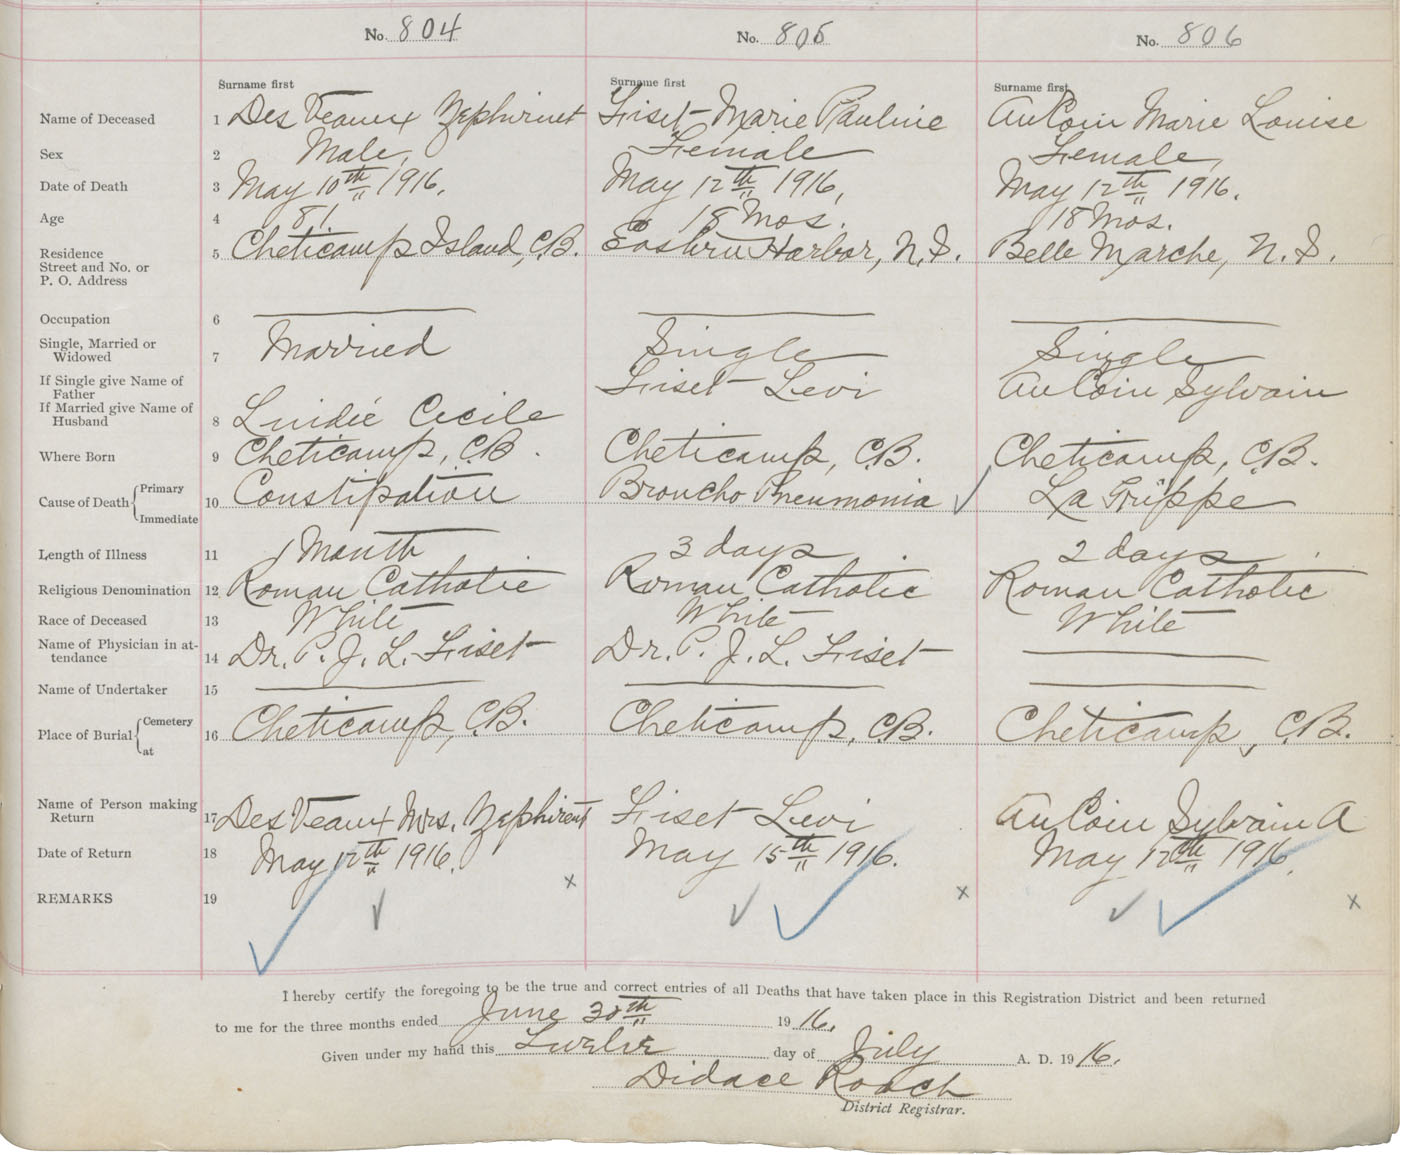 No. 804 No. 805 No. 806
Surname first Surname first Surname first
Name of Deceased 1 DesVeaux Zephirinet Fiset Marie Pauline AuCoin Marie Louise
Sex 2 Male, Female Female,
Date of Death 3 May 10th 1916. May 12th 1916, May 12th 1916.
Age 4 81 18 Mos. 18 Mos.
Residence Street and No. or P. O. Address 5 Cheticamp Island, C.B. Eastern Harbor, N.S. Belle Marche, N.S.
Occupation 6
Single, Married or Widowed 7 Married Single Single
If Single give Name of Father Fiset Levi AuCoin Sylvain
If Married give Name of Husband 8 Cecile
Where Born 9 Cheticamp, C.B. Cheticamp, C.B. Cheticamp, C.B.
Cause of Death Primary Immediate 10 Constipation Broncho Pneumonia La Grippe
Length of Illness 11 1 Month 3 days 2 days
Religious Denomination 12 Roman Catholic Roman Catholic Roman Catholic
Race of Deceased 13 White White White
Name of Physician in attendance 14 Dr. P. J. L. Fiset Dr. P. J. L. Fiset
Name of Undertaker 15
Place of Burial Cemetery at 16 Cheticamp, C.B. Cheticamp, C.B. Cheticamp, C.B.
Name of Person making Return 17 DesVeaux Mrs. Zephirent Fiset Levi AuCoin Sylvain A
Date of Return 18 May 12th 1916. May 15th 1916. May 12th 1916.
REMARKS 19 x x x
I hereby certify the foregoing to be the true and correct entries of all Deaths that have taken place in this Registration District and been returned
to me for the three months ended June 30th 1916.
Given under my hand this Twelve day of July A. D. 1916.
Didace Roach
District Registrar.